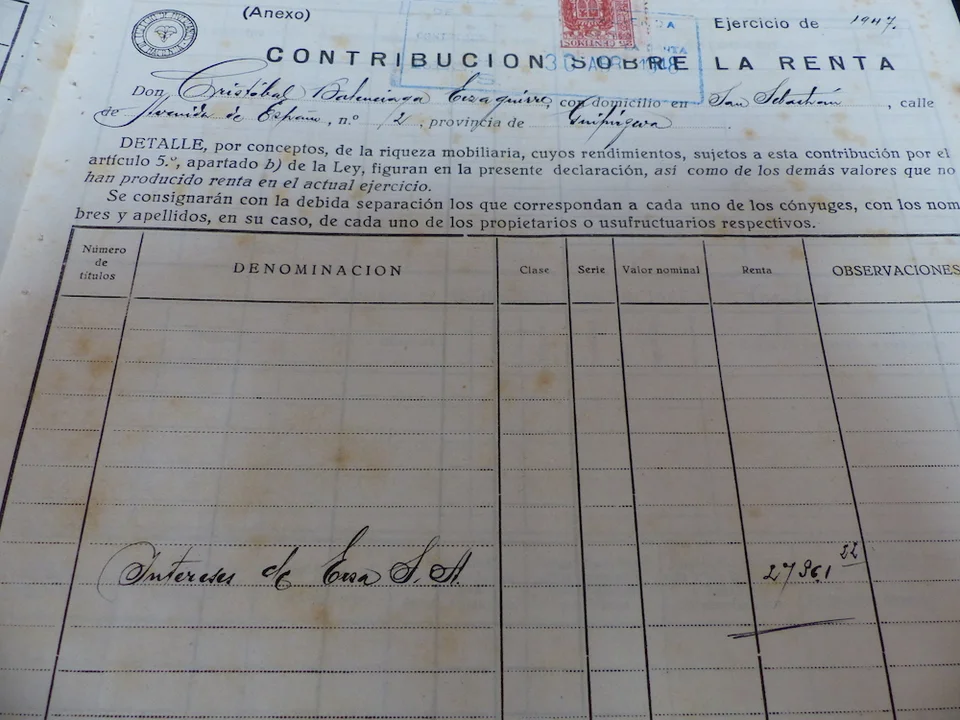 (Anexo)
Ejercicio de 1947.
CONTRIBUCION SOBRE LA RENTA
30 ABR 1948
Don Cristóbal Balenciaga Eizaguirre, con domicilio en San Sebastián, calle
de Avenida de España, n.º 2, provincia de Guipúzcoa.
DETALLE, por conceptos, de la riqueza mobiliaria, cuyos rendimientos, sujetos a esta contribución por el
artículo 5.º, apartado b) de la Ley, figuran en la presente declaración, así como de los demás valores que no
han producido renta en el actual ejercicio.
Se consignarán con la debida separación los que correspondan a cada uno de los cónyuges, con los nom
bres y apellidos, en su caso, de cada uno de los propietarios o usufructuarios respectivos.
Número de títulos
DENOMINACION
Clase
Serie
Valor nominal
Renta
OBSERVACIONES
Intereses de Eisa S. A. 27961 22